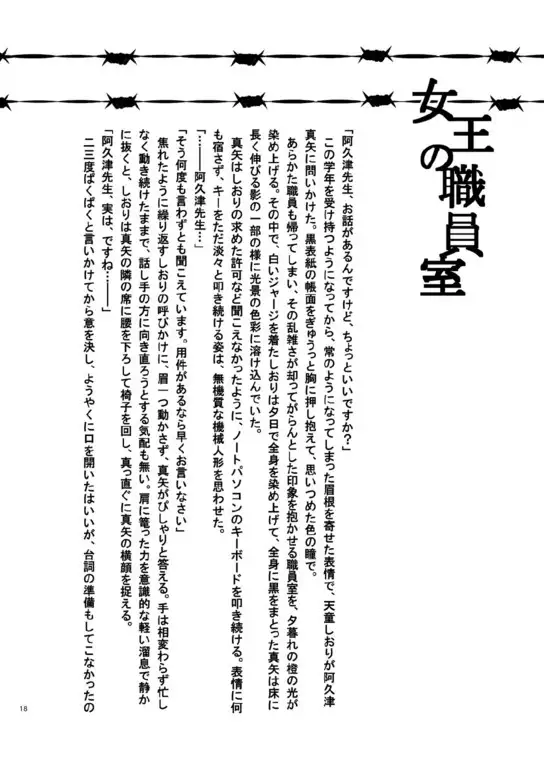 女王の職員室
「阿久津先生、お話があるんですけど、ちょっといいですか？」
この学年を受け持つようになってから、常のようになってしまった眉根を寄せた表情で、天童しおりが阿久津
真矢に問いかけた。黒表紙の帳面をぎゅうっと胸に押し抱えて、思いつめた色の瞳で。
あらかた職員も帰ってしまい、その乱雑さが却ってがらんとした印象を抱かせる職員室を、夕暮れの橙の光が
染め上げる。その中で、白いジャージを着たしおりは夕日で全身を染め上げて、全身に黒をまとった真矢は床に
長く伸びる影の一部の様に光景の色彩に溶け込んでいた。
真矢はしおりの求めた許可など聞こえなかったように、ノートパソコンのキーボードを叩き続ける。表情に何
も宿さず、キーをただ淡々と叩き続ける姿は、無機質な機械人形を思わせた。
「……阿久津先生…」
「そう何度も言わずとも聞こえています。用件があるなら早くお言いなさい」
焦れたように繰り返すしおりの呼びかけに、眉一つ動かさず、真矢がぴしゃりと答える。手は相変わらず忙し
なく動き続けたままで、話し手の方に向き直ろうとする気配も無い。肩に篭った力を意識的な軽い溜息で静か
に抜くと、しおりは真矢の隣の席に腰を下ろして椅子を回し、真っ直ぐに真矢の横顔を捉える。
「阿久津先生、実は、ですね……」
二三度ぱくぱくと言いかけてから意を決し、ようやくに口を開いたはいいが、台詞の準備もしてこなかったの
18